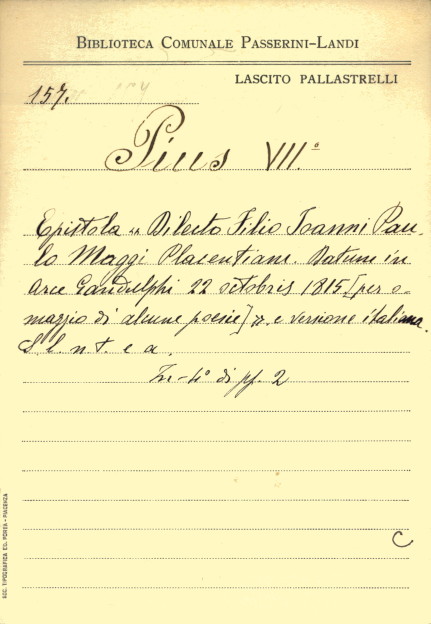 BIBLIOTECA COMUNALE PASSERINI-LANDI
LASCITO PALLASTRELLI
157.
Pius VII.°
Epistola « Dilecto Filio Joanni Pau-
lo Maggi Placentiam. Datum in
Arce Gandulphi 22 octobris 1815 [per o-
maggio di alcune poesie] ». e versione italiana.
S. l. n. t. e a.
In-4° di pp. 2
C
SOC. TIPOGRAFICA ED. PORTA - PIACENZA